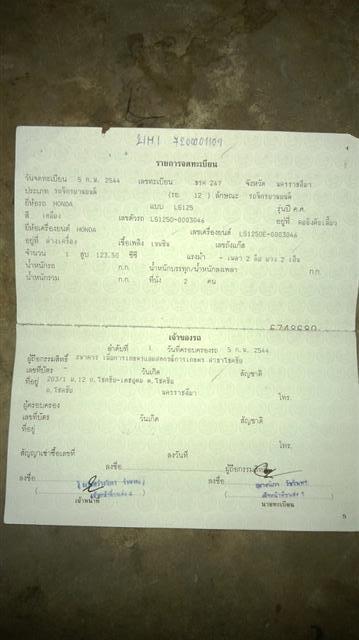 รายการจดทะเบียน
วันจดทะเบียน 5 ก.พ. 2544 เลขทะเบียน 247 จังหวัด นครราชสีมา
ประเภท รถจักรยานยนต์ (รย. 12 ) ลักษณะ รถจักรยานยนต์
ยี่ห้อรถ HONDA แบบ LS125 รุ่นปี ค.ศ.
สี เหลือง เลขตัวรถ LS125D-0003046 อยู่ที่
ยี่ห้อเครื่องยนต์ HONDA เลขเครื่องยนต์ LS125DE-0003046
อยู่ที่ ล่างเครื่อง เชื้อเพลิง เบนซิน เลขถังแก๊ส
จำนวน 1 สูบ 123.50 ซีซี แรงม้า - เพลา 2 ล้อ ยาง 2 เส้น
น้ำหนักรถ ก.ก. น้ำหนักบรรทุก/น้ำหนักลงเพลา ก.ก.
น้ำหนักรวม ก.ก. ที่นั่ง 2 คน
เจ้าของรถ
ลำดับที่ 1 วันที่ครอบครองรถ 5 ก.พ. 2544
ผู้ถือกรรมสิทธิ์ ธนาคาร เพื่อการเกษตรและสหกรณ์การเกษตร สาขาโชคชัย
เลขที่บัตร วันเกิด สัญชาติ
ที่อยู่ 203/1 ม.12 ถ.โชคชัย-เดชอุดม ต.โชคชัย
อ.โชคชัย นครราชสีมา โทร.
ผู้ครอบครอง
เลขที่บัตร วันเกิด สัญชาติ
ที่อยู่
โทร.
สัญญาเช่าซื้อเลขที่ ลงวันที่
ลงชื่อ ผู้ถือกรรมสิทธิ์
ลงชื่อ ลงชื่อ
เจ้าหน้าที่ นายทะเบียน